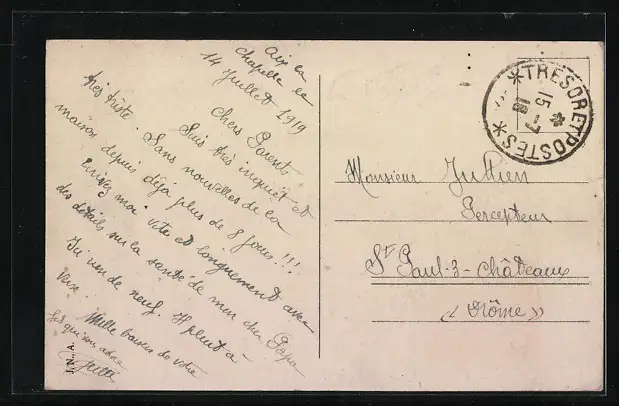 Aix la
Chapelle le
14 Juillet 1919
Chers Parents
Suis très inquiet et
très triste. Sans nouvelles de la
maison depuis déjà plus de 8 jours!!!
Ecrivez moi vite et longuement avec
des détails sur la santé de mon cher Papa
Ici rien de neuf. Il pleut à
verse.
Mille baisers de votre
fils qui vous adore
J.N.,A.
TRESOR ET POSTES
15-7
Monsieur Jullien
Percepteur
St Paul-3-châteaux
"Drôme"